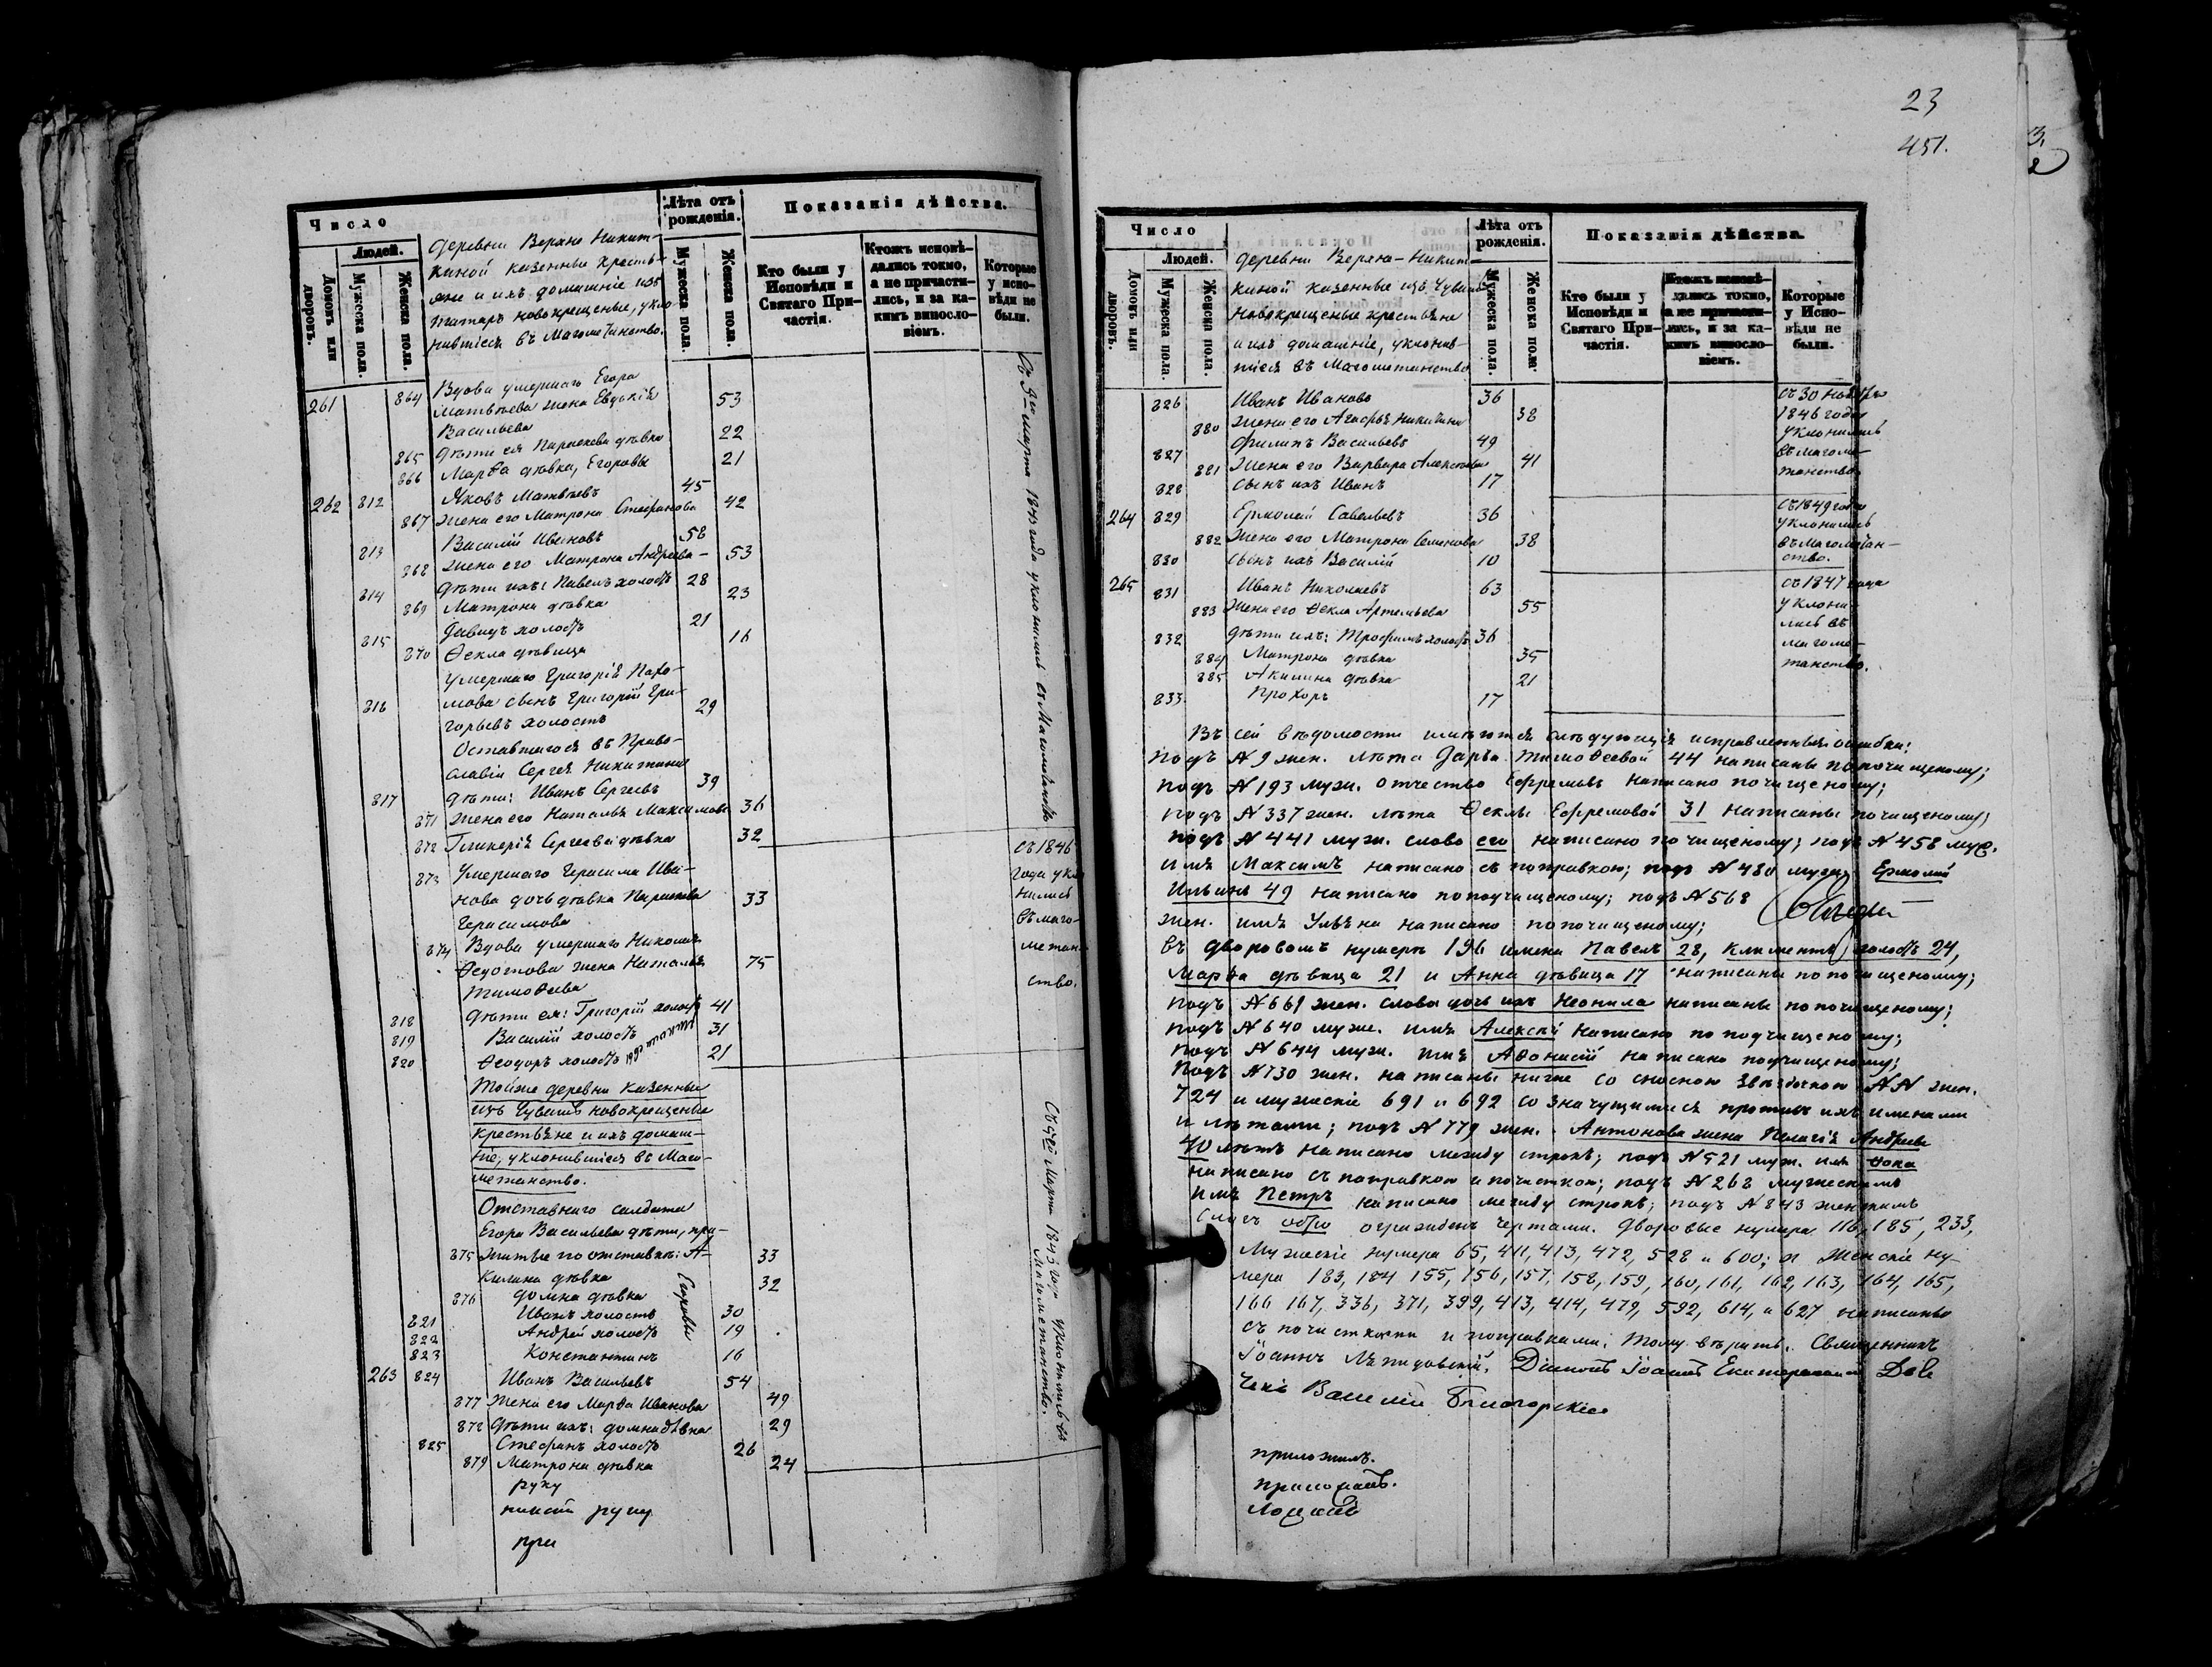 Число
Людей.
Домовъ или дворовъ.
Мужеска пола.
Женска пола.
деревни Верхне Никит-
киной казенные кресть-
яне и ихъ домашніе изъ
татаръ новокрещеные, укло-
нившіеся въ Магометанство.
Лѣта отъ рожденія.
Мужеска пола.
Женска пола.
Показанія дѣйства.
Кто были у Исповѣди и Святаго При-частія.
Ктожъ исповѣ-дались токмо, а не причасти-лись, и за ка-кимъ винословіемъ.
Которые у испо-вѣди не были.
261 864 Вдова умершаго Егора
Матвѣева жена Евдокія 53
Васильева
865 дѣти ея Параскева дѣвка 22
866 Марѳа дѣвка, Егоровы 21
262 812 Яковъ Матвѣевъ 45
867 жена его Матрона Стефанова 42
813 Василій Ивановъ 58
868 жена его Матрона Андреева 53
814 дѣти ихъ: Павелъ холостъ 28
869 Матрона дѣвка 23
815 Давидъ холостъ 21
870 Ѳекла дѣвица 16
умершаго Григорія Пахо-
816 мова сынъ Григорій Гри- 29
горьевъ холостъ
Оставшагося въ Право-
славіи Сергея Никитина
817 дѣти: Иванъ Сергеевъ 39
871 жена его Наталья Максимова 36
872 Гликерія Сергеева дѣвка 32
873 Умершаго Герасима Ива-
нова дочь дѣвка Параскева 33
Герасимова
874 Вдова умершаго Николая
Ѳедотова жена Наталья 75
Тимоѳеева
818 дѣти ея: Григорій холостъ 41
819 Василій холостъ 31
820 Ѳеодоръ холостъ 21
Тойже деревни казенные
изъ Чувашъ новокрещеные
крестьяне и ихъ домаш-
ніе, уклонившіеся въ Маго-
метанство.
Отставнаго солдата
Егора Васильева дѣти, при-
875 житые по отставкѣ: А- 33
килина дѣвка
876 Домна дѣвка 32
821 Иванъ холостъ 30
822 Андрей холостъ 19
823 Константинъ 16
Егоровы
263 824 Иванъ Васильевъ 54
877 Жена его Марѳа Иванова 49
878 Дѣти ихъ: Домна дѣвка 29
825 Стефанъ холостъ 26
879 Матрона дѣвка 24
руку
руку
при
Марта 1843 года уклонились въ Магометанство
съ 1846
года укло
нились
въ маго-
метан-
ство.
Марта 1843 году уклонились въ
Магометанство.
23
451.
Число
Людей.
Домовъ или дворовъ.
Мужеска пола.
Женска пола.
деревни Верхне-Никит-
киной казенные изъ Чувашъ
Новокрещеные крестьяне
и ихъ домашніе, уклонив-
шіеся въ Магометанство
Лѣта отъ рожденія.
Мужеска пола.
Женска пола.
Показанія дѣйства.
Кто были у Исповѣди и Святаго При-частія.
Ктожъ исповѣ-дались токмо, а не причасти-лись, и за ка-кимъ винословіемъ.
Которые у Испо-вѣди не были.
826 Иванъ Ивановъ 36 съ 30 Ноября
880 жена его Агафья Никитина 38 1846 года
827 Филипъ Васильевъ 49 уклонились
881 жена его Варвара Алексѣева 41 въ магоме-
828 сынъ ихъ Иванъ 17 танство.
264 829 Ермолай Савельевъ 36 съ 1849 года
882 Жена его Матрона Семенова 38 уклонились
830 сынъ ихъ Василій 10 въ магометан-
ство.
265 831 Иванъ Николаевъ 63 съ 1847 года
883 жена его Ѳекла Артемьева 55 уклони-
832 дѣти ихъ: Трофимъ холостъ 36 лись въ
884 Матрона дѣвка 35 магоме-
885 Акилина дѣвка 21 танство.
833 Прохоръ 17
Въ сей вѣдомости имѣются слѣдующія исправленныя ошибки:
подъ № 9 жен. лѣта Дарьи Тимоѳеевой 44 написаны по почищеному;
подъ № 193 муж. отчество Ефремовъ написано почищеному;
подъ № 337 жен. лѣта Ѳеклы Ефремовой 31 написаны почищеному;
подъ № 441 муж. слово его написано почищеному; подъ № 458 муж.
имя Максимъ написано съ поправкою; подъ № 480 муж. Ермолай
Ильинъ 49 написано по почищеному; подъ № 568
жен. имя Ульяна написано по почищеному;
въ дворовомъ нумерѣ 196 имена Павелъ 28, Климентъ холостъ 24,
Марѳа дѣвица 21 и Анна дѣвица 17 написаны по почищеному;
подъ № 661 жен. слова дочь ихъ Неонила написаны по почищеному;
подъ № 640 муж. имя Алексѣй написано по подчищеному;
подъ № 644 муж. имя Аѳонасій написано подчищеному;
подъ № 730 жен. написаны ниже со сноскою звѣздочкою №№ жен.
724 и мужескіе 691 и 692 со значущимися противъ ихъ именами
и лѣтами; подъ № 779 жен. Антонова жена Пелагія Андреева
40 лѣтъ написано между строкъ; подъ № 521 муж. имя Ѳока
написано съ поправкою и почисткою; подъ № 268 мужескимъ
имя Петръ написано между строкъ; подъ № 843 женскимъ
слогъ обро огражденъ чертами. Дворовые нумера 116, 185, 233,
Мужескіе нумера 65, 411, 413, 472, 528 и 600; и Женскіе ну-
мера 183, 184 155, 156, 157, 158, 159, 160, 161, 162, 163, 164, 165,
166 167, 336, 371, 399, 413, 414, 479, 592, 614, и 627 написаны
съ почистками и поправками. Тому вѣрить. Священникъ
Іоаннъ Діаконъ Іоаннъ
Василій
приложилъ.
приложилъ.
ложилъ